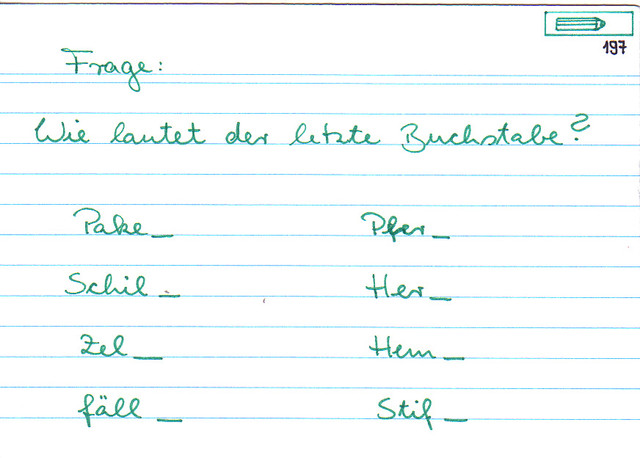 197
Frage:
Wie lautet der letzte Buchstabe?
Pake_ Pfer_
Schil_ Her_
Zel_ Hem_
fäll_ Stif_